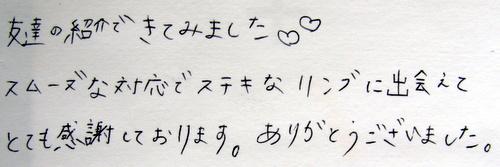 友達の紹介できてみました♡♡
スムーズな対応でステキなリングに出会えて
とても感謝しております。ありがとうございました。